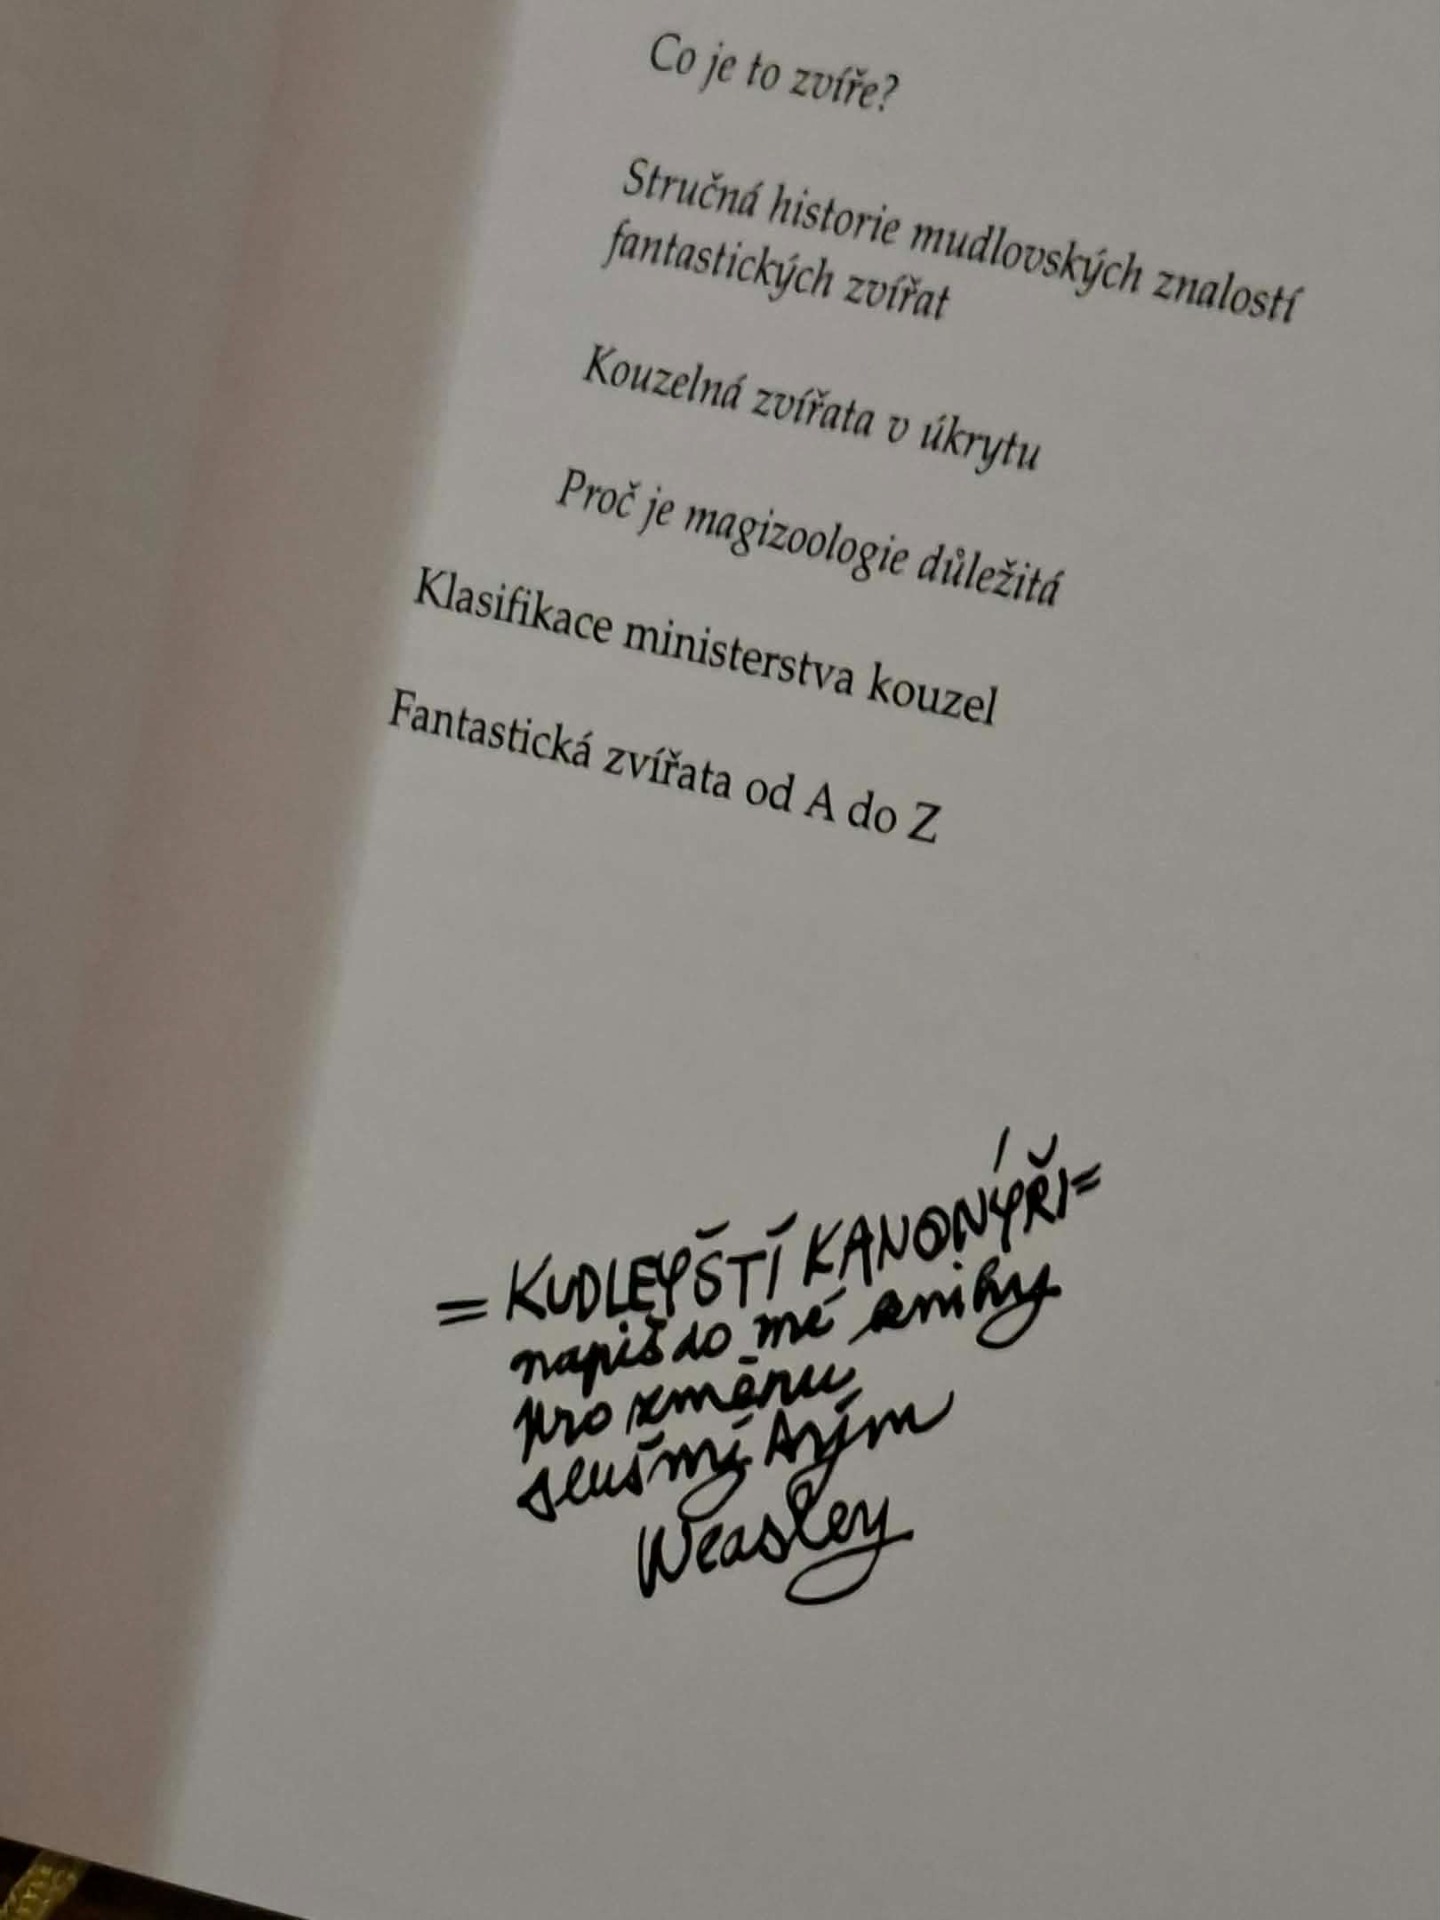 Co je to zvíře?
Stručná historie mudlovských znalostí
fantastických zvířat
Kouzelná zvířata v úkrytu
Proč je magizoologie důležitá
Klasifikace ministerstva kouzel
Fantastická zvířata od A do Z
= KUDLEYŠTÍ KANONÝŘI =
napiš do mé knihy
pro změnu
slušný tým
Weasley